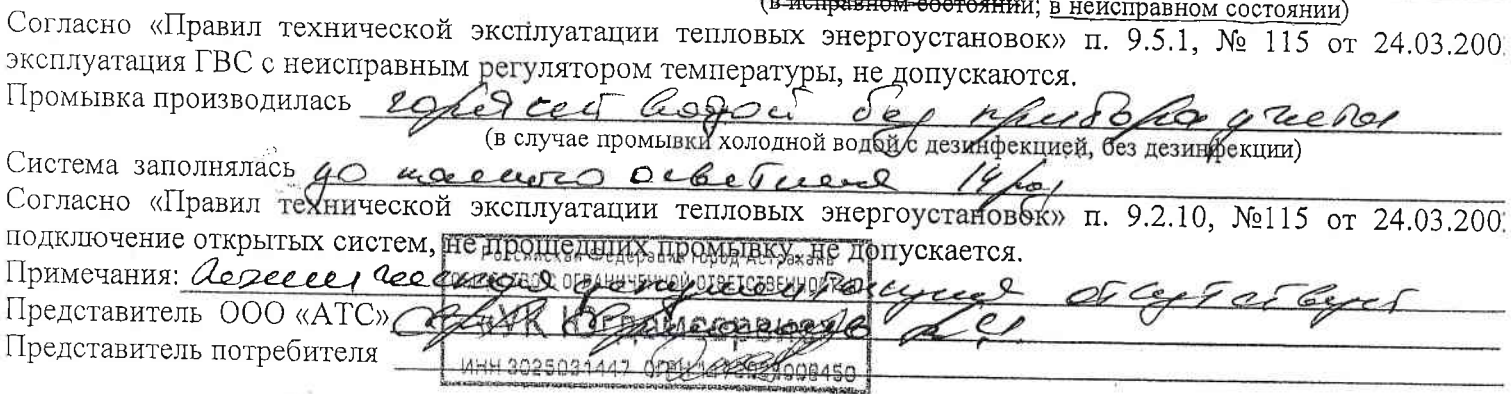 (в исправном состоянии; в неисправном состоянии)
Согласно «Правил технической эксплуатации тепловых энергоустановок» п. 9.5.1, № 115 от 24.03.200
эксплуатация ГВС с неисправным регулятором температуры, не допускаются.
Промывка производилась горячей водой без прибора учета
(в случае промывки холодной водой с дезинфекцией, без дезинфекции)
Система заполнялась до полного осветления 14
Согласно «Правил технической эксплуатации тепловых энергоустановок» п. 9.2.10, №115 от 24.03.200
подключение открытых систем, не прошедших промывку, не допускается.
Российская Федерация город Астрахань
Примечания: документация отсутствует
ОБЩЕСТВО С ОГРАНИЧЕННОЙ ОТВЕТСТВЕННОСТЬЮ
Представитель ООО «АТС»
Представитель потребителя
ИНН 3025031447 ОГРН